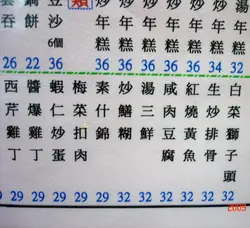 雲吞 26
鍋餅 22
豆沙6個 36
類
炒年糕 36
炒年糕 36
炒年糕 36
炒年糕 36
炒年糕 34
湯年糕 32
西芹雞丁 29
醬爆雞丁 29
蝦仁炒蛋 29
梅菜扣肉 29
素什錦 29
炒鱔糊 32
湯三鮮 32
咸肉豆腐 32
紅燒黃魚 32
生炒排骨 32
白菜獅子頭 32